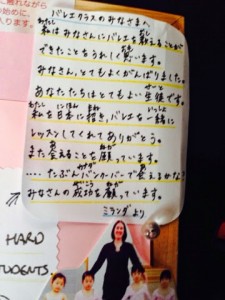 バレエクラスのみなさまへ
私はみなさんにバレエを教えることが
できたことをうれしく思います。
みなさん、とてもよくがんばりました。
あなたたちはとてもよい生徒です。
私を日本に招き、バレエを一緒に
レッスンしてくれてありがとう。
また会えることを願っています。
....たぶんバンクーバーで会えるかな?
みなさんの成功を願っています。
ミランダより
HARD